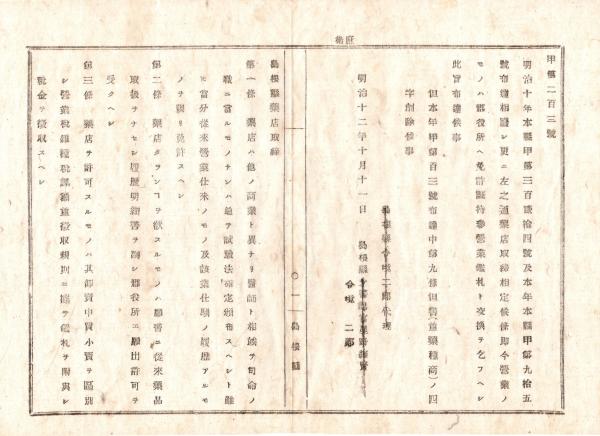 甲第二百三號
明治十年本縣甲第三百貳拾四號及本年本縣甲第九拾五
號布達相廢シ更ニ左之通藥店取締相定候條即今營業ノ
モノハ郡役所ヘ免許證持參營業鑑札ト交換ヲ乞フヘシ
此旨布達候事
但本年甲第百三號布達中第九條但書
藥種商ノ四
字削除候事
明治十二年十月十一日
島根縣
島根縣藥店取締
第一條 藥店ハ他ノ商業ト異ナリ醫師ト相俟テ司命ノ
職ニ當ルモノナレハ追テ試驗法確定頒布スヘシト雖
モ當分從來營業仕來ノモノ及該業仕馴ノ履歷アルモ
ノヲ限リ免許スヘシ
第二條 藥店タランコヲ欲スルモノハ願書ニ從來藥品
取扱ヲナセシ履歷明細書ヲ
郡役所ニ願出許可ヲ
受クヘシ
第三條 藥店ヲ許可スルモノハ其卸賣中買小賣ヲ區別
シ營業稅雜種稅課額並徵收規則ニ
鑑札ヲ付與シ
稅金ヲ徵收スヘシ
〇一
島根縣